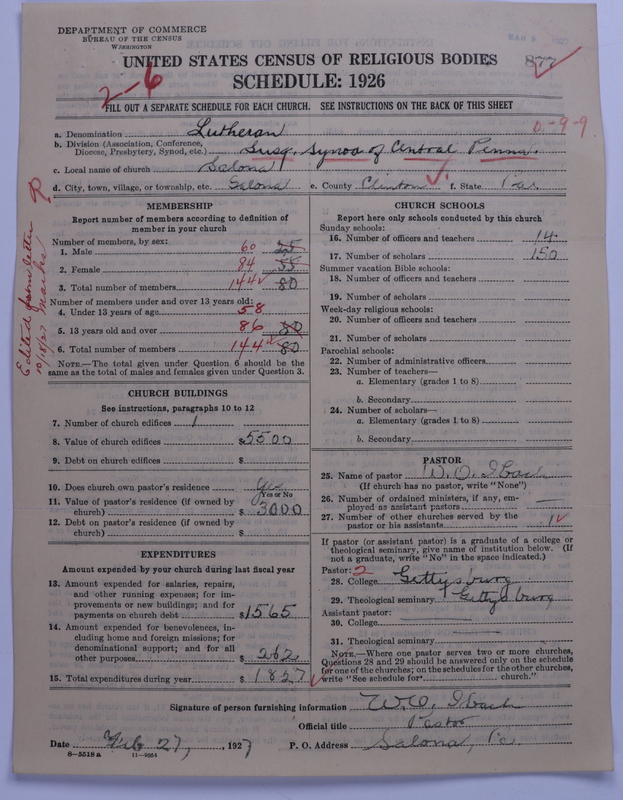 DEPARTMENT OF COMMERCE
BUREAU OF THE CENSUS
WASHINGTON
UNITED STATES CENSUS OF RELIGIOUS BODIES
877
SCHEDULE: 1926
2-6
FILL OUT A SEPARATE SCHEDULE FOR EACH CHURCH. SEE INSTRUCTIONS ON THE BACK OF THIS SHEET
0-9-9
a. Denomination Lutheran
b. Division (Association, Conference, Diocese, Presbytery, Synod, etc.) Susq. Synod of Central Penna.
c. Local name of church Salona
d. City, town, village, or township, etc. Salona e. County Clinton f. State Pa.
Edited from letter
10/18/27
MEMBERSHIP
Report number of members according to definition of
member in your church
Number of members, by sex:
1. Male 60 25
2. Female 84 55
3. Total number of members 144 80
Number of members under and over 13 years old:
4. Under 13 years of age 58
5. 13 years old and over 86 80
6. Total number of members 144 80
NOTE.—The total given under Question 6 should be the
same as the total of males and females given under Question 3.
CHURCH BUILDINGS
See instructions, paragraphs 10 to 12
7. Number of church edifices 1
8. Value of church edifices $5500
9. Debt on church edifices $
10. Does church own pastor's residence Yes
(Yes or No)
11. Value of pastor's residence (if owned by
church) $ 3000
12. Debt on pastor's residence (if owned by
church) $
EXPENDITURES
Amount expended by your church during last fiscal year
13. Amount expended for salaries, repairs,
and other running expenses; for im-
provements or new buildings; and for
payments on church debt $1565
14. Amount expended for benevolences, in-
cluding home and foreign missions; for
denominational support; and for all
other purposes $ 262
15. Total expenditures during year $ 1827
CHURCH SCHOOLS
Report here only schools conducted by this church
Sunday schools:
16. Number of officers and teachers 14
17. Number of scholars 150
Summer vacation Bible schools:
18. Number of officers and teachers
19. Number of scholars
Week-day religious schools:
20. Number of officers and teachers
21. Number of scholars
Parochial schools:
22. Number of administrative officers
23. Number of teachers—
a. Elementary (grades 1 to 8)
b. Secondary
24. Number of scholars—
a. Elementary (grades 1 to 8)
b. Secondary
PASTOR
25. Name of pastor W. O. Ibach
(If church has no pastor, write "None")
26. Number of ordained ministers, if any, em-
ployed as assistant pastors —
27. Number of other churches served by the
pastor or his assistants 1
If pastor (or assistant pastor) is a graduate of a college or
theological seminary, give name of institution below. (If
not a graduate, write "No" in the space indicated.)
Pastor: 2
28. College Gettysburg
29. Theological seminary Gettysburg
Assistant pastor:
30. College
31. Theological seminary
NOTE.—Where one pastor serves two or more churches,
Questions 28 and 29 should be answered only on the schedule
for one of the churches; on the schedules for the other churches,
write "See schedule for church."
Signature of person furnishing information W. O. Ibach
Official title Pastor
Date Feb 27, 1927 P. O. Address Salona, Pa.
8-5518 a 11-9054